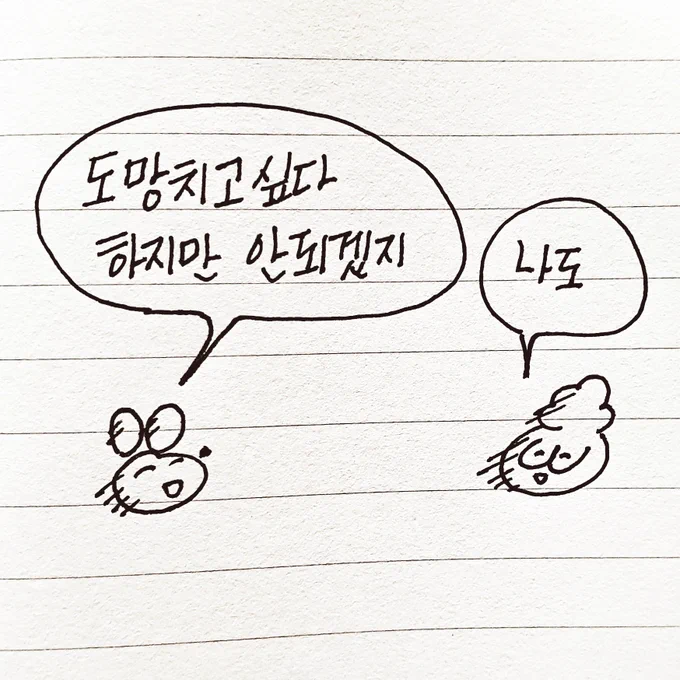 도망치고싶다
하지만 안되겠지
나도